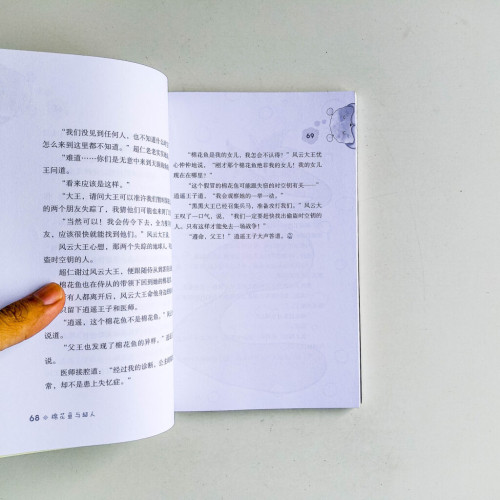 “我们没见到任何人，也不知道什么
怎么来到这里都不知道。”超仁老老实实
“难道……你们是无意中来到天
王问道。
“看来应该是这样。”
“大王，请问大王可以准许我们
的两个朋友失踪了，我猜他们可能也来
“当然可以！我会传令下去，全力
友，应该很快就能找到他们。”风云大王
风云大王心想，那两个失踪的地球人，
盗时空钥的人。
超仁谢过风云大王，便跟随侍从
棉花鱼也在侍从的带领下回到她的
有人都离开后，风云大王命他身边
只留下逍遥王子和医师。
“逍遥，这个棉花鱼不是棉花鱼。”
说道。
“父王也发现了棉花鱼的异样，”
说。
医师接腔道：“经过我的诊断，公主
常，却不是患上失忆症。”
68
棉花鱼与超人
69
“棉花鱼是我的女儿，我怎会不认得！”风云大王忧
心忡忡地说，“刚才那个棉花鱼绝非我的女儿！我的女儿
现在在哪里？”
“这个假冒的棉花鱼可能跟失窃的时空钥有关……”
逍遥王子道，“我会观察她的一举一动。”
“黑黑大王已经召集兵马，准备攻打我们。”风云大
王叹了一口气，说，“我们一定要赶快找出偷盗时空钥的人。
只有这样才能免去一场战争！”
“遵命，父王！”逍遥王子大声答道。